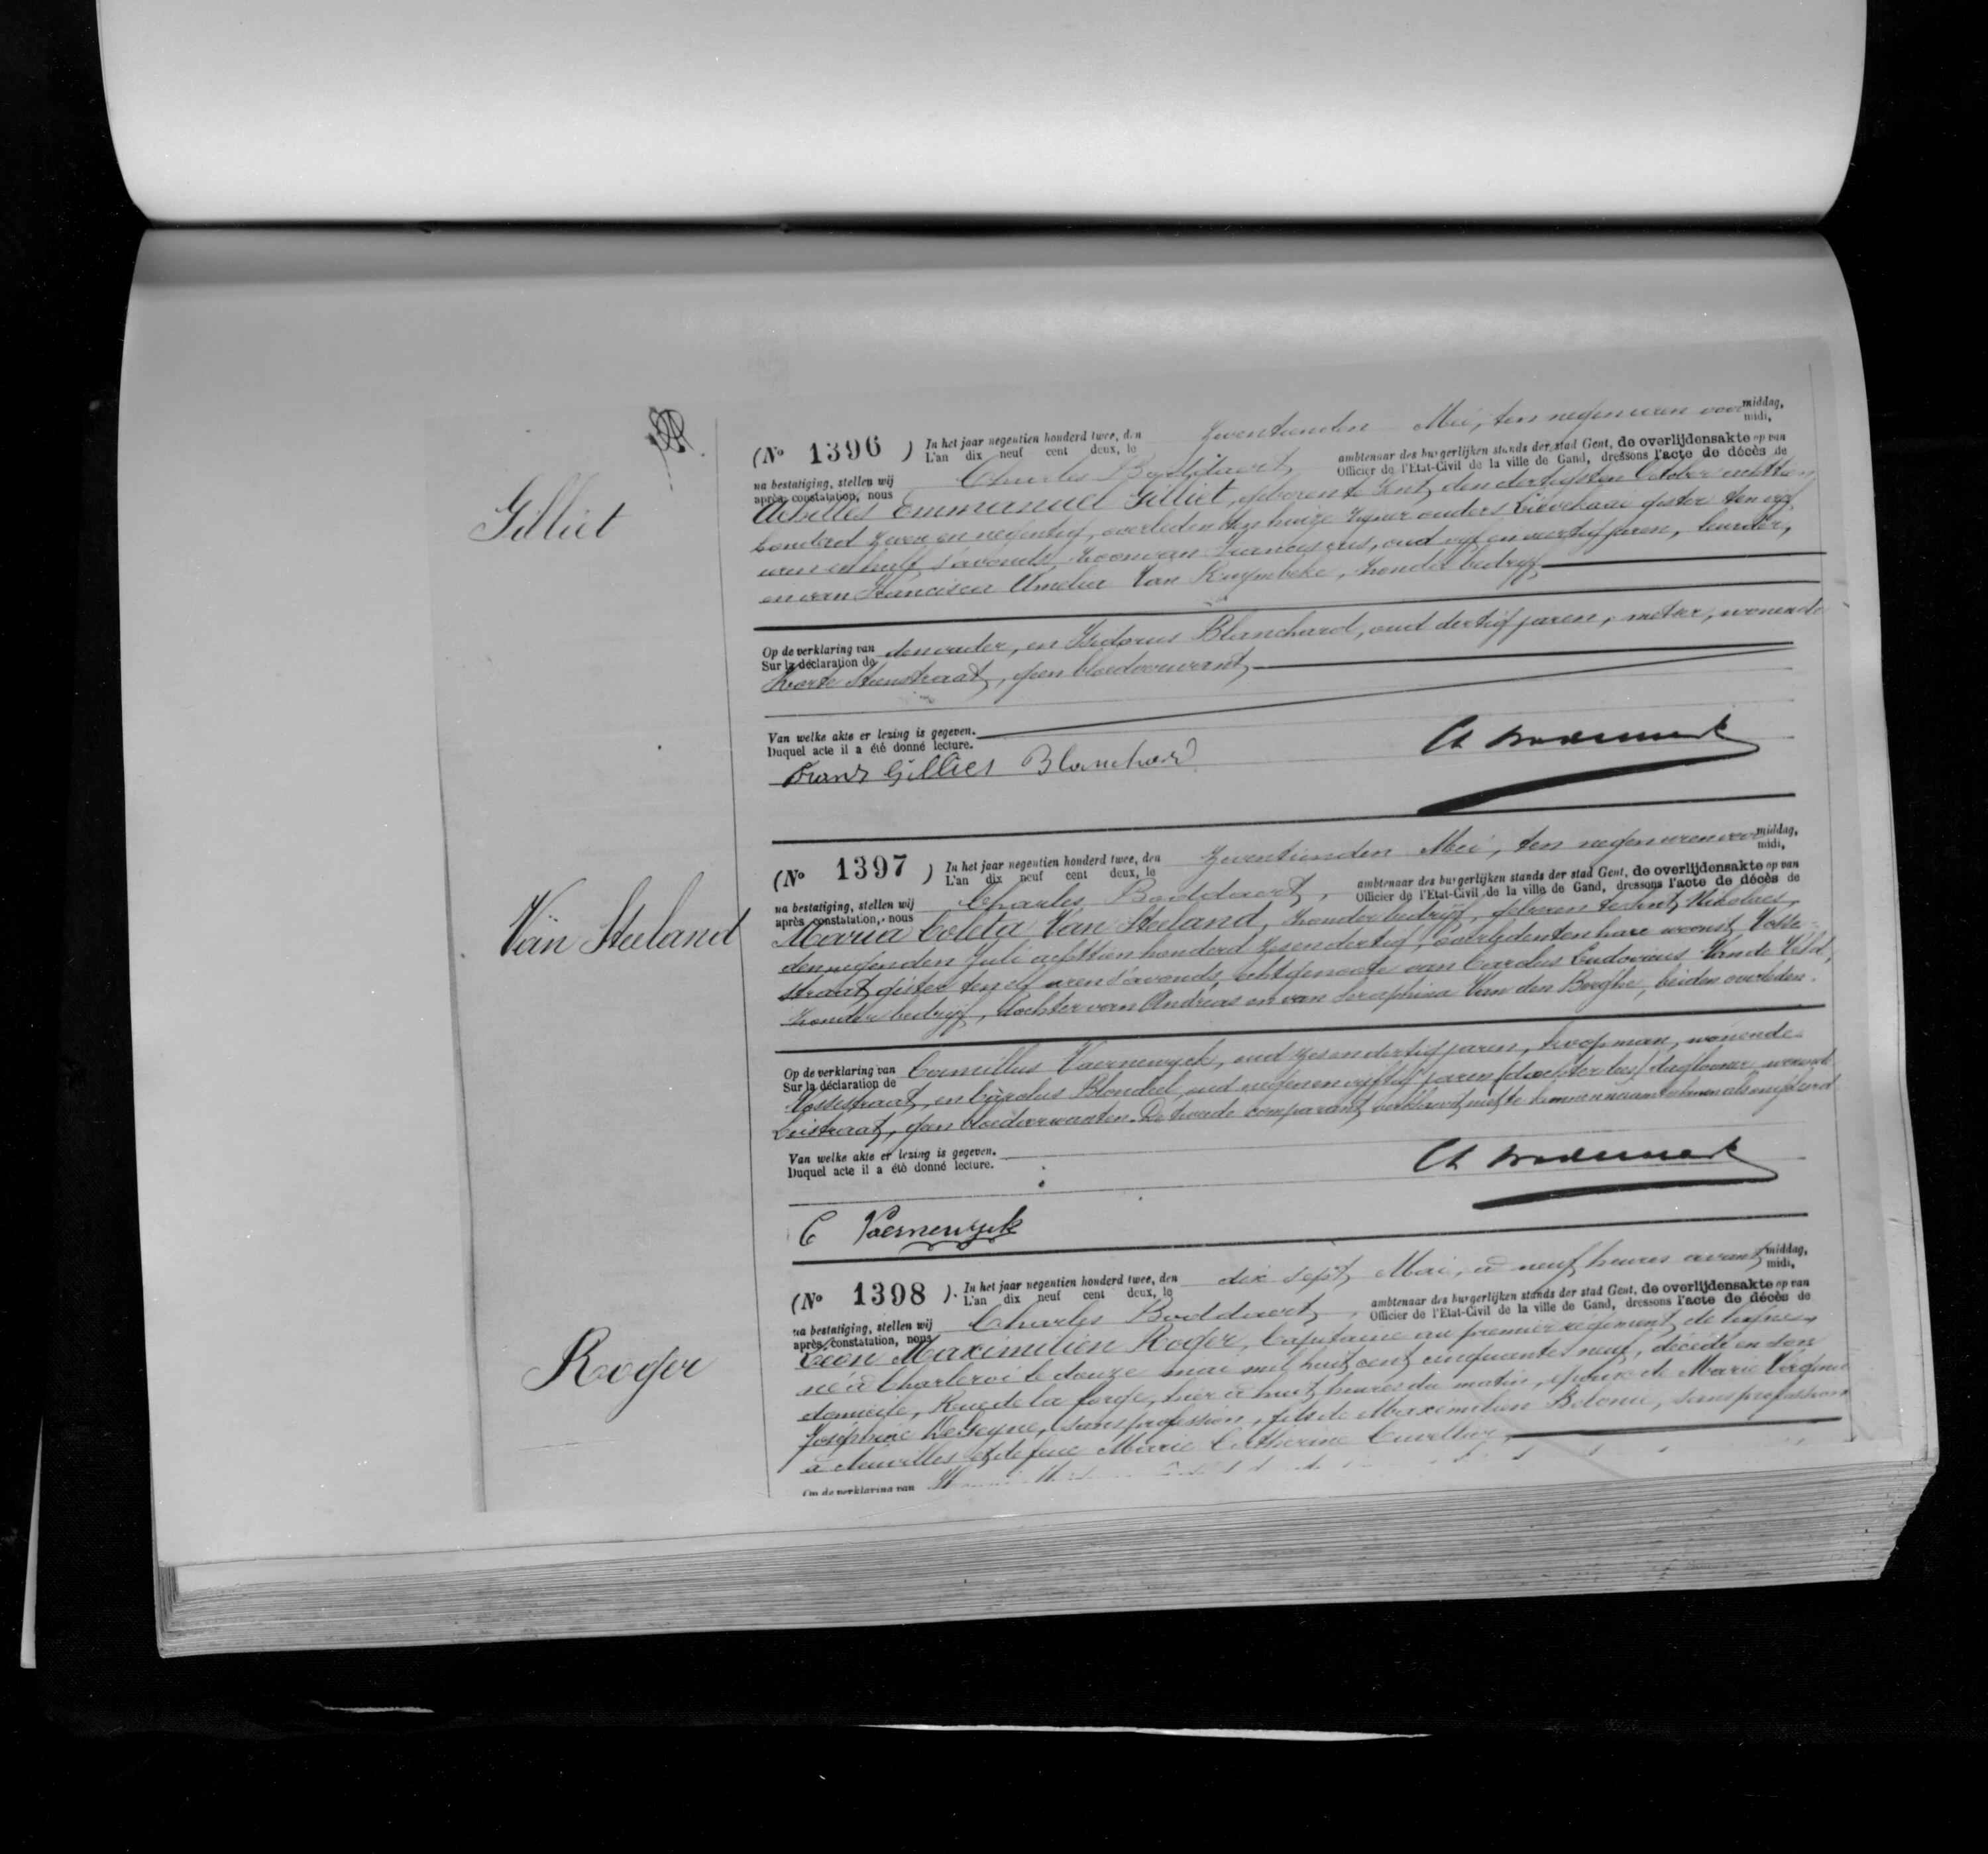 Gilliet
(No 1396) In het jaar negentien honderd twee, den zeventienden Mei, ten negen uren voor middag,
L'an dix neuf cent deux, le midi,
na bestatiging, stellen wij Charles Boddaert, ambtenaar des burgerlijken stands der stad Gent, de overlijdensakte op van
après constatation, nous Officier de l'Etat-Civil de la ville de Gand, dressons l'acte de décès de
Achilles Emmanuel Gilliet, geboren te Gent, den dertigsten October achttien
honderd zeven en negentig, overleden ten huize zijner ouders Lievekaai gister ten vijf
uren en half s'avonds, zoon van Franciscus, oud vijf en veertig jaren, leurder,
en van Francisca Amelia Van Ruymbeke, zonder bedrijf,
Op de verklaring van den vader, en Isidorus Blanchard, oud dertig jaren, metser, wonende
Sur la déclaration de
Korte Steenstraat, geen bloedverwant,
Van welke akte er lezing is gegeven.
Duquel acte il a été donné lecture.
Frans Gilliet Blanchard
Van Steeland
(No 1397) In het jaar negentien honderd twee, den zeventienden Mei, ten negen uren voor middag,
L'an dix neuf cent deux, le midi,
na bestatiging, stellen wij Charles Boddaert, ambtenaar des burgerlijken stands der stad Gent, de overlijdensakte op van
après constatation, nous Officier de l'Etat-Civil de la ville de Gand, dressons l'acte de décès de
Maria Coleta Van Steeland, zonder bedrijf, geboren te Sint Nikolaes,
den negenden Juli achttien honderd zesendertig, overleden ten hare woonst, Posse-
straat, gister ten elf uren s'avonds, echtgenoote van Carolus Ludovicus Van de Veld,
zonder bedrijf, dochter van Andréas en van Seraphina Van den Berghe, beiden overleden.
Op de verklaring van Camillus Vaernewyck, oud zesendertig jaren, koopman, wonende
Sur la déclaration de
straat, en Carolus Blondeel, oud negen en vijftig jaren, dagloner, wonende
geen bloedverwanten. De tweede comparant verklaard niet te kunnen als ongeleerd
Van welke akte er lezing is gegeven.
Duquel acte il a été donné lecture.
C Vaernewyck
Roger
(No 1398). In het jaar negentien honderd twee, den dix sept Mai, à neuf heures avant middag,
L'an dix neuf cent deux, le midi,
na bestatiging, stellen wij Charles Boddaert, ambtenaar des burgerlijken stands der stad Gent, de overlijdensakte op van
après constatation, nous Officier de l'Etat-Civil de la ville de Gand, dressons l'acte de décès de
Léon Maximilien Roger, Capitaine au premier régiment de ligne,
né à Charleroi le douze mai mil huit cent cinquante neuf, décédé en son
domicile, Rue de la forge, hier à huit heures du matin, époux de Marie Virginie
Joséphine De Geyne, sans profession, fils de Maximilien Antoine, sans profession
à Nivelles et de feue Marie Catherine Cuvellier,
Op de verklaring van